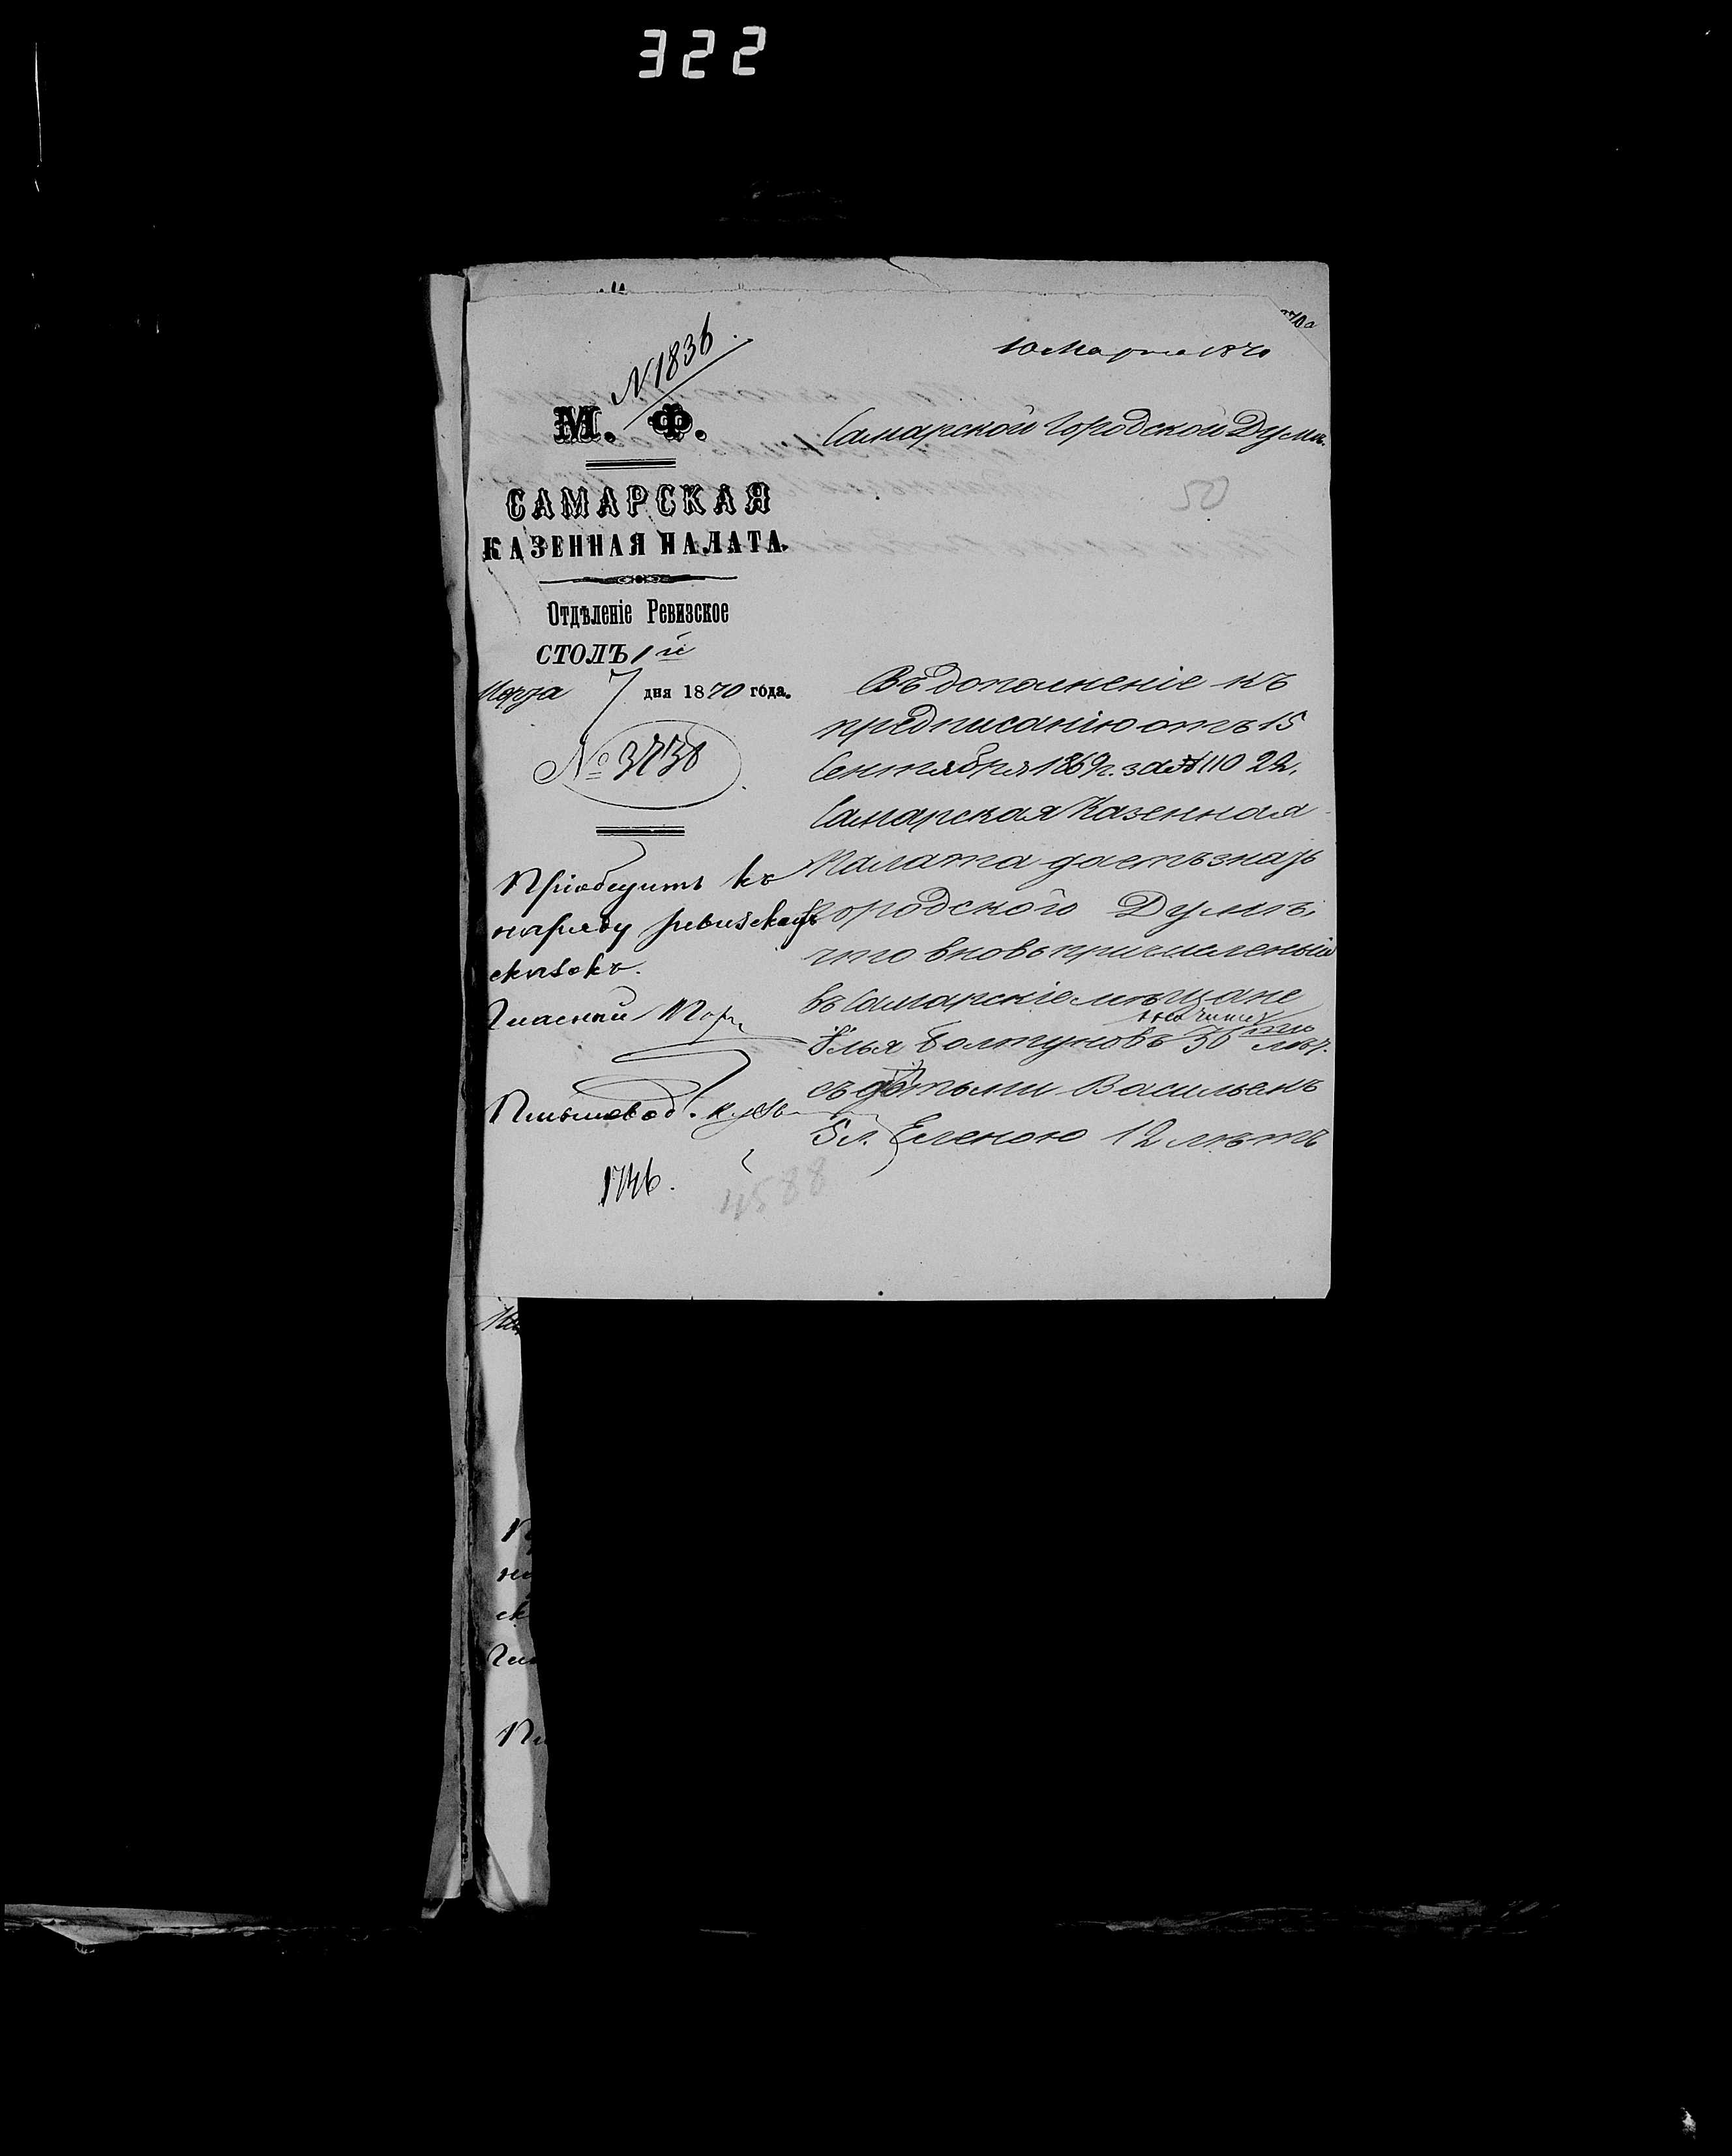 322
N 1836
10 Марта 1870
М. Ф.
САМАРСКАЯ
КАЗЕННАЯ ПАЛАТА.
Отдѣленіе Ревизское
СТОЛЪ 1й
Марта 7 дня 1870 года.
№ 3738
Пріобщить къ
наряду ревизскихъ
сказокъ.
Гласный
Письмовод.
1746.
4588
Самарской Городской Думѣ.
50
Въ дополненіе къ
предписанію отъ 15
Сентября 1869 г. за № 11022,
Самарская Казенная
Палата даетъ знать
Городской Думѣ,
что вновь причисленный
въ Самарскіе мѣщане
Илья Болтуновъ 36 лѣт.
съ дѣтьми Васильемъ
5 л. Еленою 12 лѣтъ